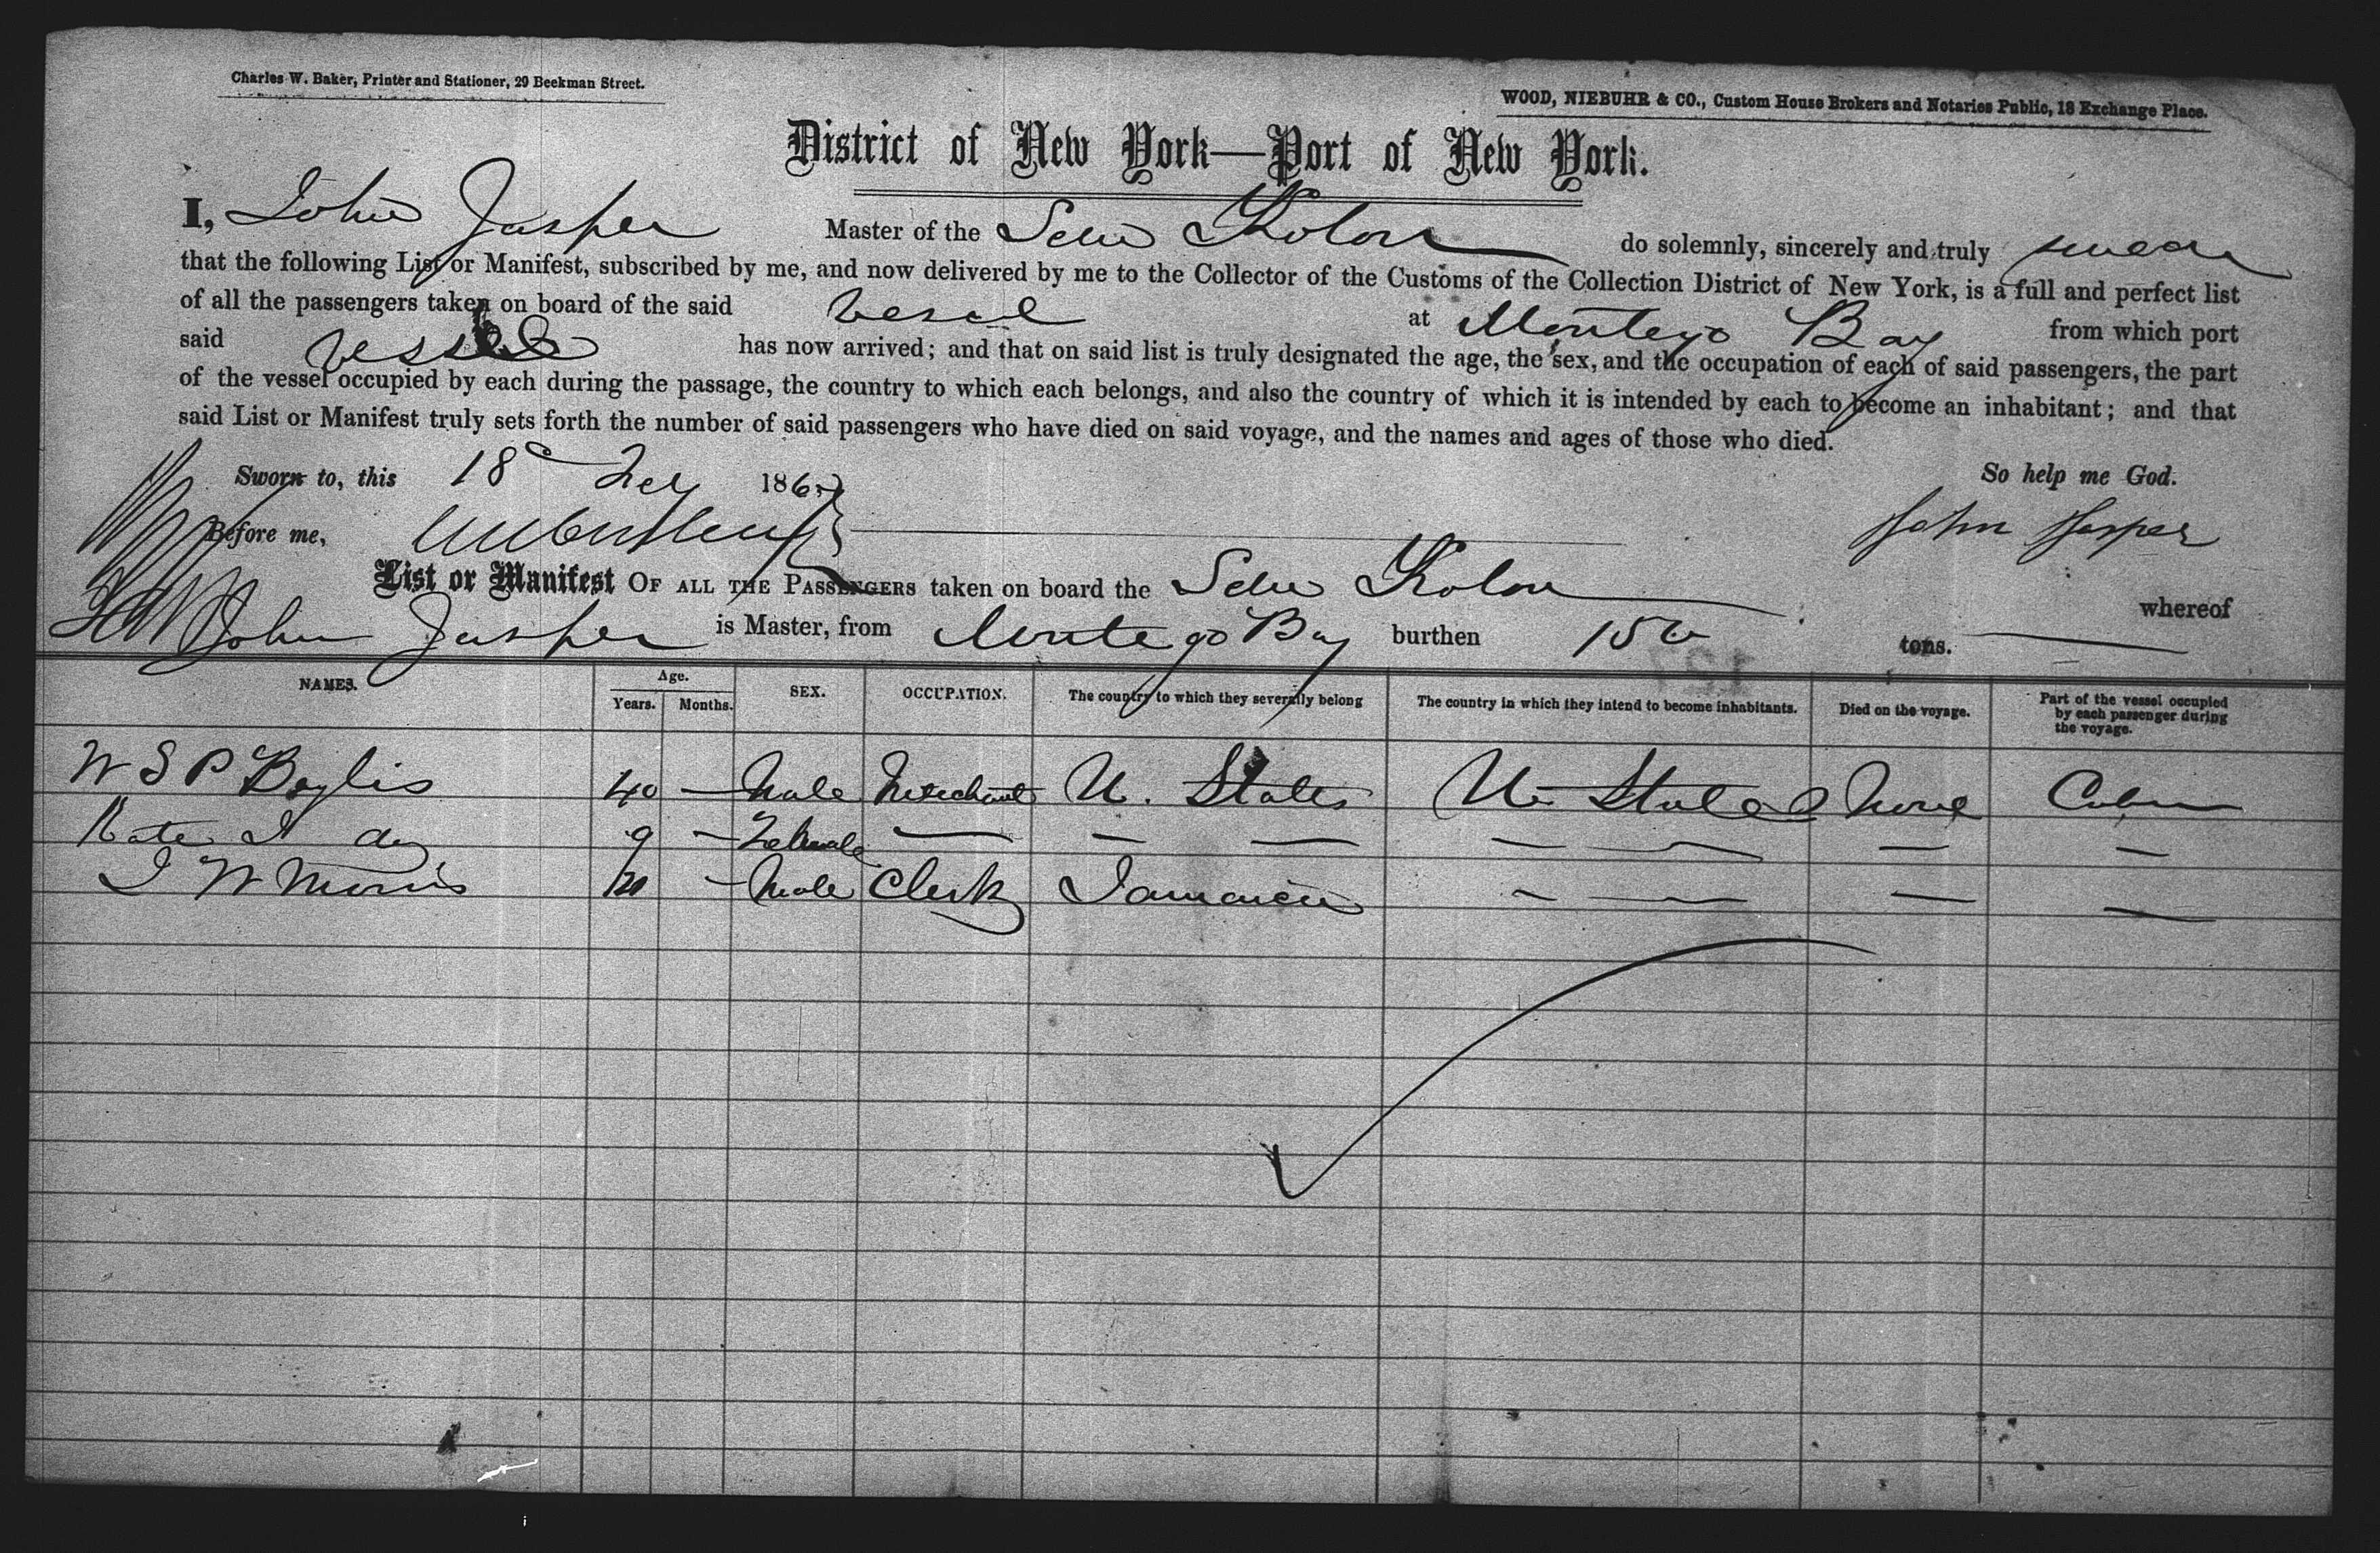 Charles W. Baker, Printer and Stationer, 29 Beekman Street.
WOOD, NIEBUHR & CO., Custom House Brokers and Notaries Public, 18 Exchange Place.
District of New York—Port of New York.
I, John Jasper Master of the Schr Kolon do solemnly, sincerely and truly swear
that the following List or Manifest, subscribed by me, and now delivered by me to the Collector of the Customs of the Collection District of New York, is a full and perfect list
of all the passengers taken on board of the said vessel at Montego Bay from which port
said vessel has now arrived; and that on said list is truly designated the age, the sex, and the occupation of each of said passengers, the part
of the vessel occupied by each during the passage, the country to which each belongs, and also the country of which it is intended by each to become an inhabitant; and that
said List or Manifest truly sets forth the number of said passengers who have died on said voyage, and the names and ages of those who died.
Sworn to, this 18 186 So help me God.
Before me, John Jasper
List or Manifest OF ALL THE PASSENGERS taken on board the Schr Kolon whereof
John Jasper is Master, from Montego Bay burthen 150 tons.
NAMES. Age. Years. Months. SEX. OCCUPATION. The country to which they severally belong The country in which they intend to become inhabitants. Died on the voyage. Part of the vessel occupied by each passenger during the voyage.
W S P Baylis 40 — Male Merchant U. States U. States None Cabin
Kate I do 9 — Female — — — — — — —
J W Morris 20 — Male Clerk Jamaica — — — —